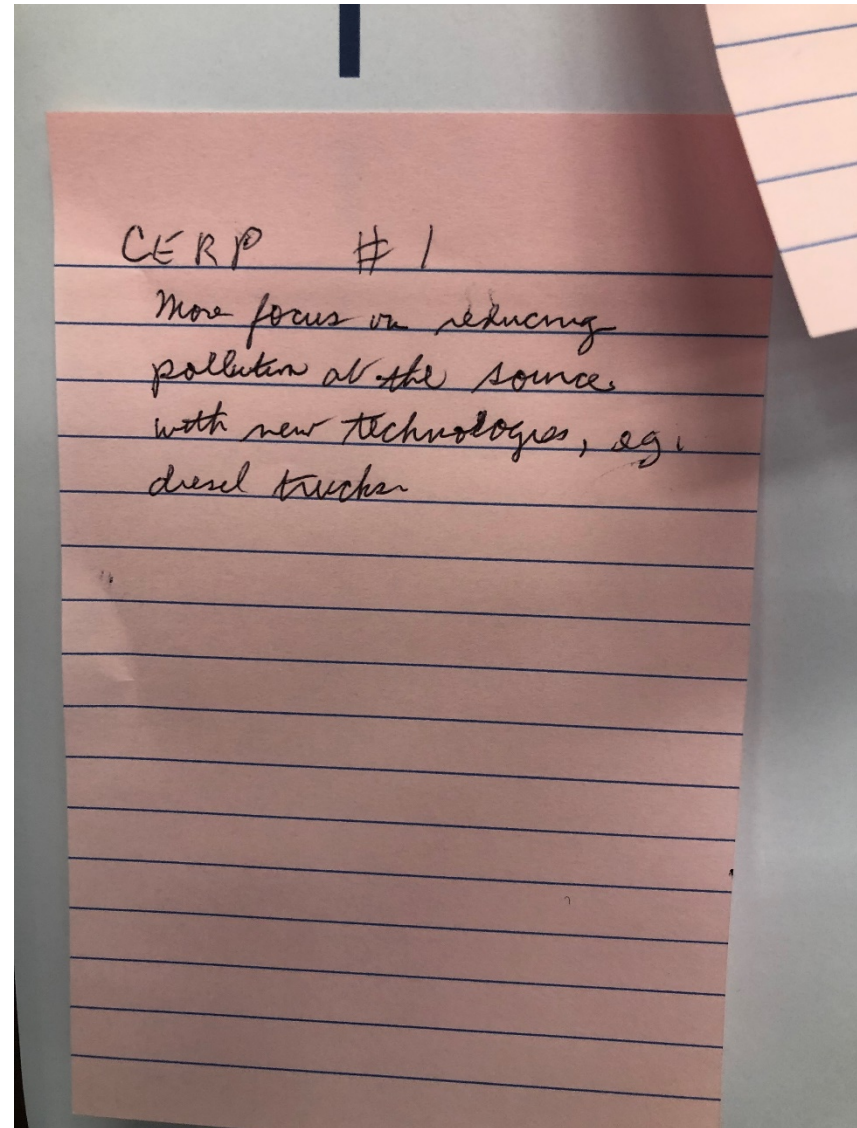 CERP # 1
More focus on reducing
pollution at the source
with new technologies, eg.
diesel trucks